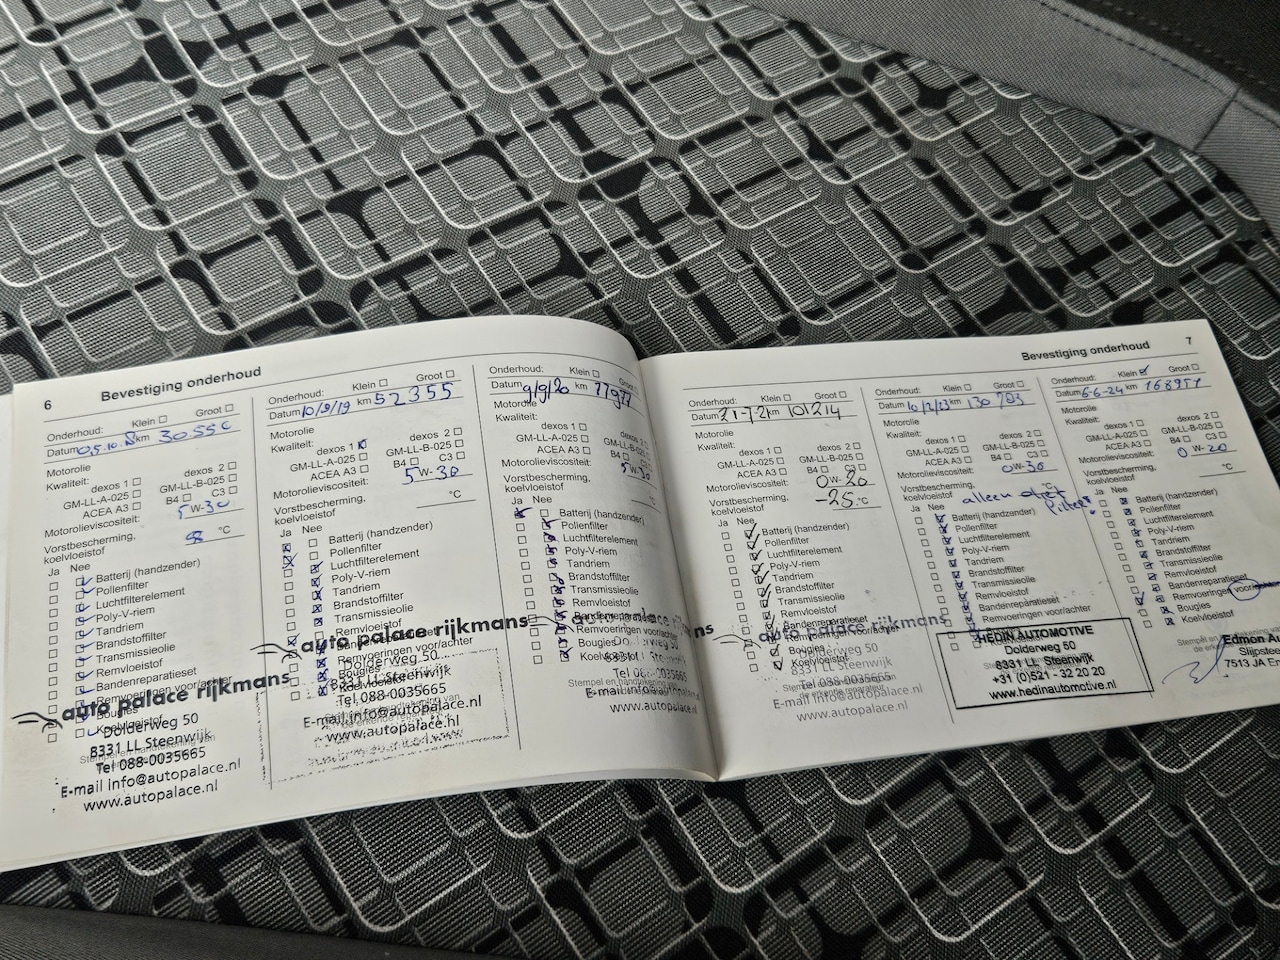 6
Bevestiging onderhoud
Onderhoud: Klein Groot
Datum km
Motorolie
Kwaliteit:
dexos 1 dexos 2
GM-LL-A-025 GM-LL-B-025
ACEA A3 B4 C3
Motorolieviscositeit: 5 W-30
Vorstbescherming,
koelvloeistof °C
Ja Nee
Batterij (handzender)
Pollenfilter
Luchtfilterelement
Poly-V-riem
Tandriem
Brandstoffilter
Transmissieolie
Remvloeistof
Bandenreparatieset
Remvoeringen voor/achter
Bougies
Koelvloeistof
auto palace rijkmans
Dolderweg 50
8331 LL Steenwijk
Tel 088-0035665
E-mail info@autopalace.nl
www.autopalace.nl
Onderhoud: Klein Groot
Datum 10/9/19 km 52355
Motorolie
Kwaliteit:
dexos 1 dexos 2
GM-LL-A-025 GM-LL-B-025
ACEA A3 B4 C3
Motorolieviscositeit: 5 W-30
Vorstbescherming,
koelvloeistof °C
Ja Nee
Batterij (handzender)
Pollenfilter
Luchtfilterelement
Poly-V-riem
Tandriem
Brandstoffilter
Transmissieolie
Remvloeistof
Remvoeringen voor/achter
Bougies
Koelvloeistof
auto palace rijkmans
Dolderweg 50
8331 LL Steenwijk
Tel 088-0035665
E-mail info@autopalace.nl
www.autopalace.nl
Onderhoud: Klein Groot
Datum 9/9/20 km 77977
Motorolie
Kwaliteit:
dexos 1 dexos 2
GM-LL-A-025 GM-LL-B-025
ACEA A3 B4 C3
Motorolieviscositeit: 5 W-30
Vorstbescherming,
koelvloeistof °C
Ja Nee
Batterij (handzender)
Pollenfilter
Luchtfilterelement
Poly-V-riem
Tandriem
Brandstoffilter
Transmissieolie
Remvloeistof
Bandenreparatieset
Remvoeringen voor/achter
Bougies
Koelvloeistof
www.autopalace.nl
7
Bevestiging onderhoud
Onderhoud: Klein Groot
Datum 21-7-21 km 101214
Motorolie
Kwaliteit:
dexos 1 dexos 2
GM-LL-A-025 GM-LL-B-025
ACEA A3 B4 C3
Motorolieviscositeit: 0 W-20
Vorstbescherming,
koelvloeistof -25 °C
Ja Nee
Batterij (handzender)
Pollenfilter
Luchtfilterelement
Poly-V-riem
Tandriem
Brandstoffilter
Transmissieolie
Remvloeistof
Bandenreparatieset
Remvoeringen voor/achter
Bougies
Koelvloeistof
auto palace rijkmans
Dolderweg 50
8331 LL Steenwijk
Tel 088-0035665
E-mail info@autopalace.nl
www.autopalace.nl
Onderhoud: Klein Groot
Datum km
Motorolie
Kwaliteit:
dexos 1 dexos 2
GM-LL-A-025 GM-LL-B-025
ACEA A3 B4 C3
Motorolieviscositeit: 0 W-30
Vorstbescherming,
koelvloeistof °C
alleen
Ja Nee
Batterij (handzender)
Pollenfilter
Luchtfilterelement
Poly-V-riem
Tandriem
Brandstoffilter
Transmissieolie
Remvloeistof
Bandenreparatieset
HEDIN AUTOMOTIVE
Dolderweg 50
8331 LL Steenwijk
+31 (0)521 - 32 20 20
www.hedinautomotive.nl
Onderhoud: Klein Groot
Datum 6-6-24 km
Motorolie
Kwaliteit:
dexos 1 dexos 2
GM-LL-A-025 GM-LL-B-025
ACEA A3 B4 C3
Motorolieviscositeit: 0 W-20
Vorstbescherming,
koelvloeistof °C
Ja Nee
Batterij (handzender)
Pollenfilter
Luchtfilterelement
Poly-V-riem
Tandriem
Brandstoffilter
Transmissieolie
Remvloeistof
Bandenreparatieset
Remvoeringen
Bougies
Koelvloeistof
Edmon
7513 JA